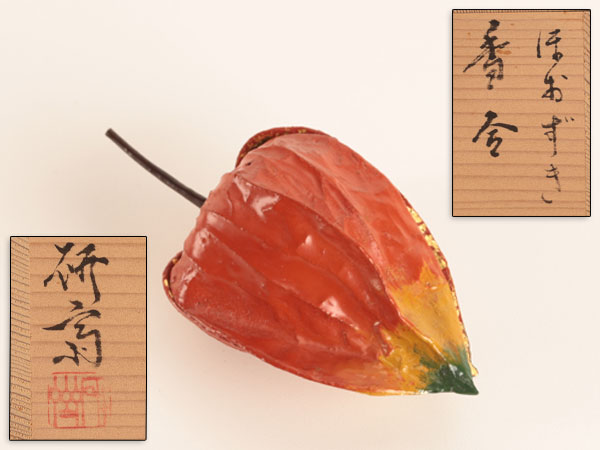 ほおずき
香合
研斎